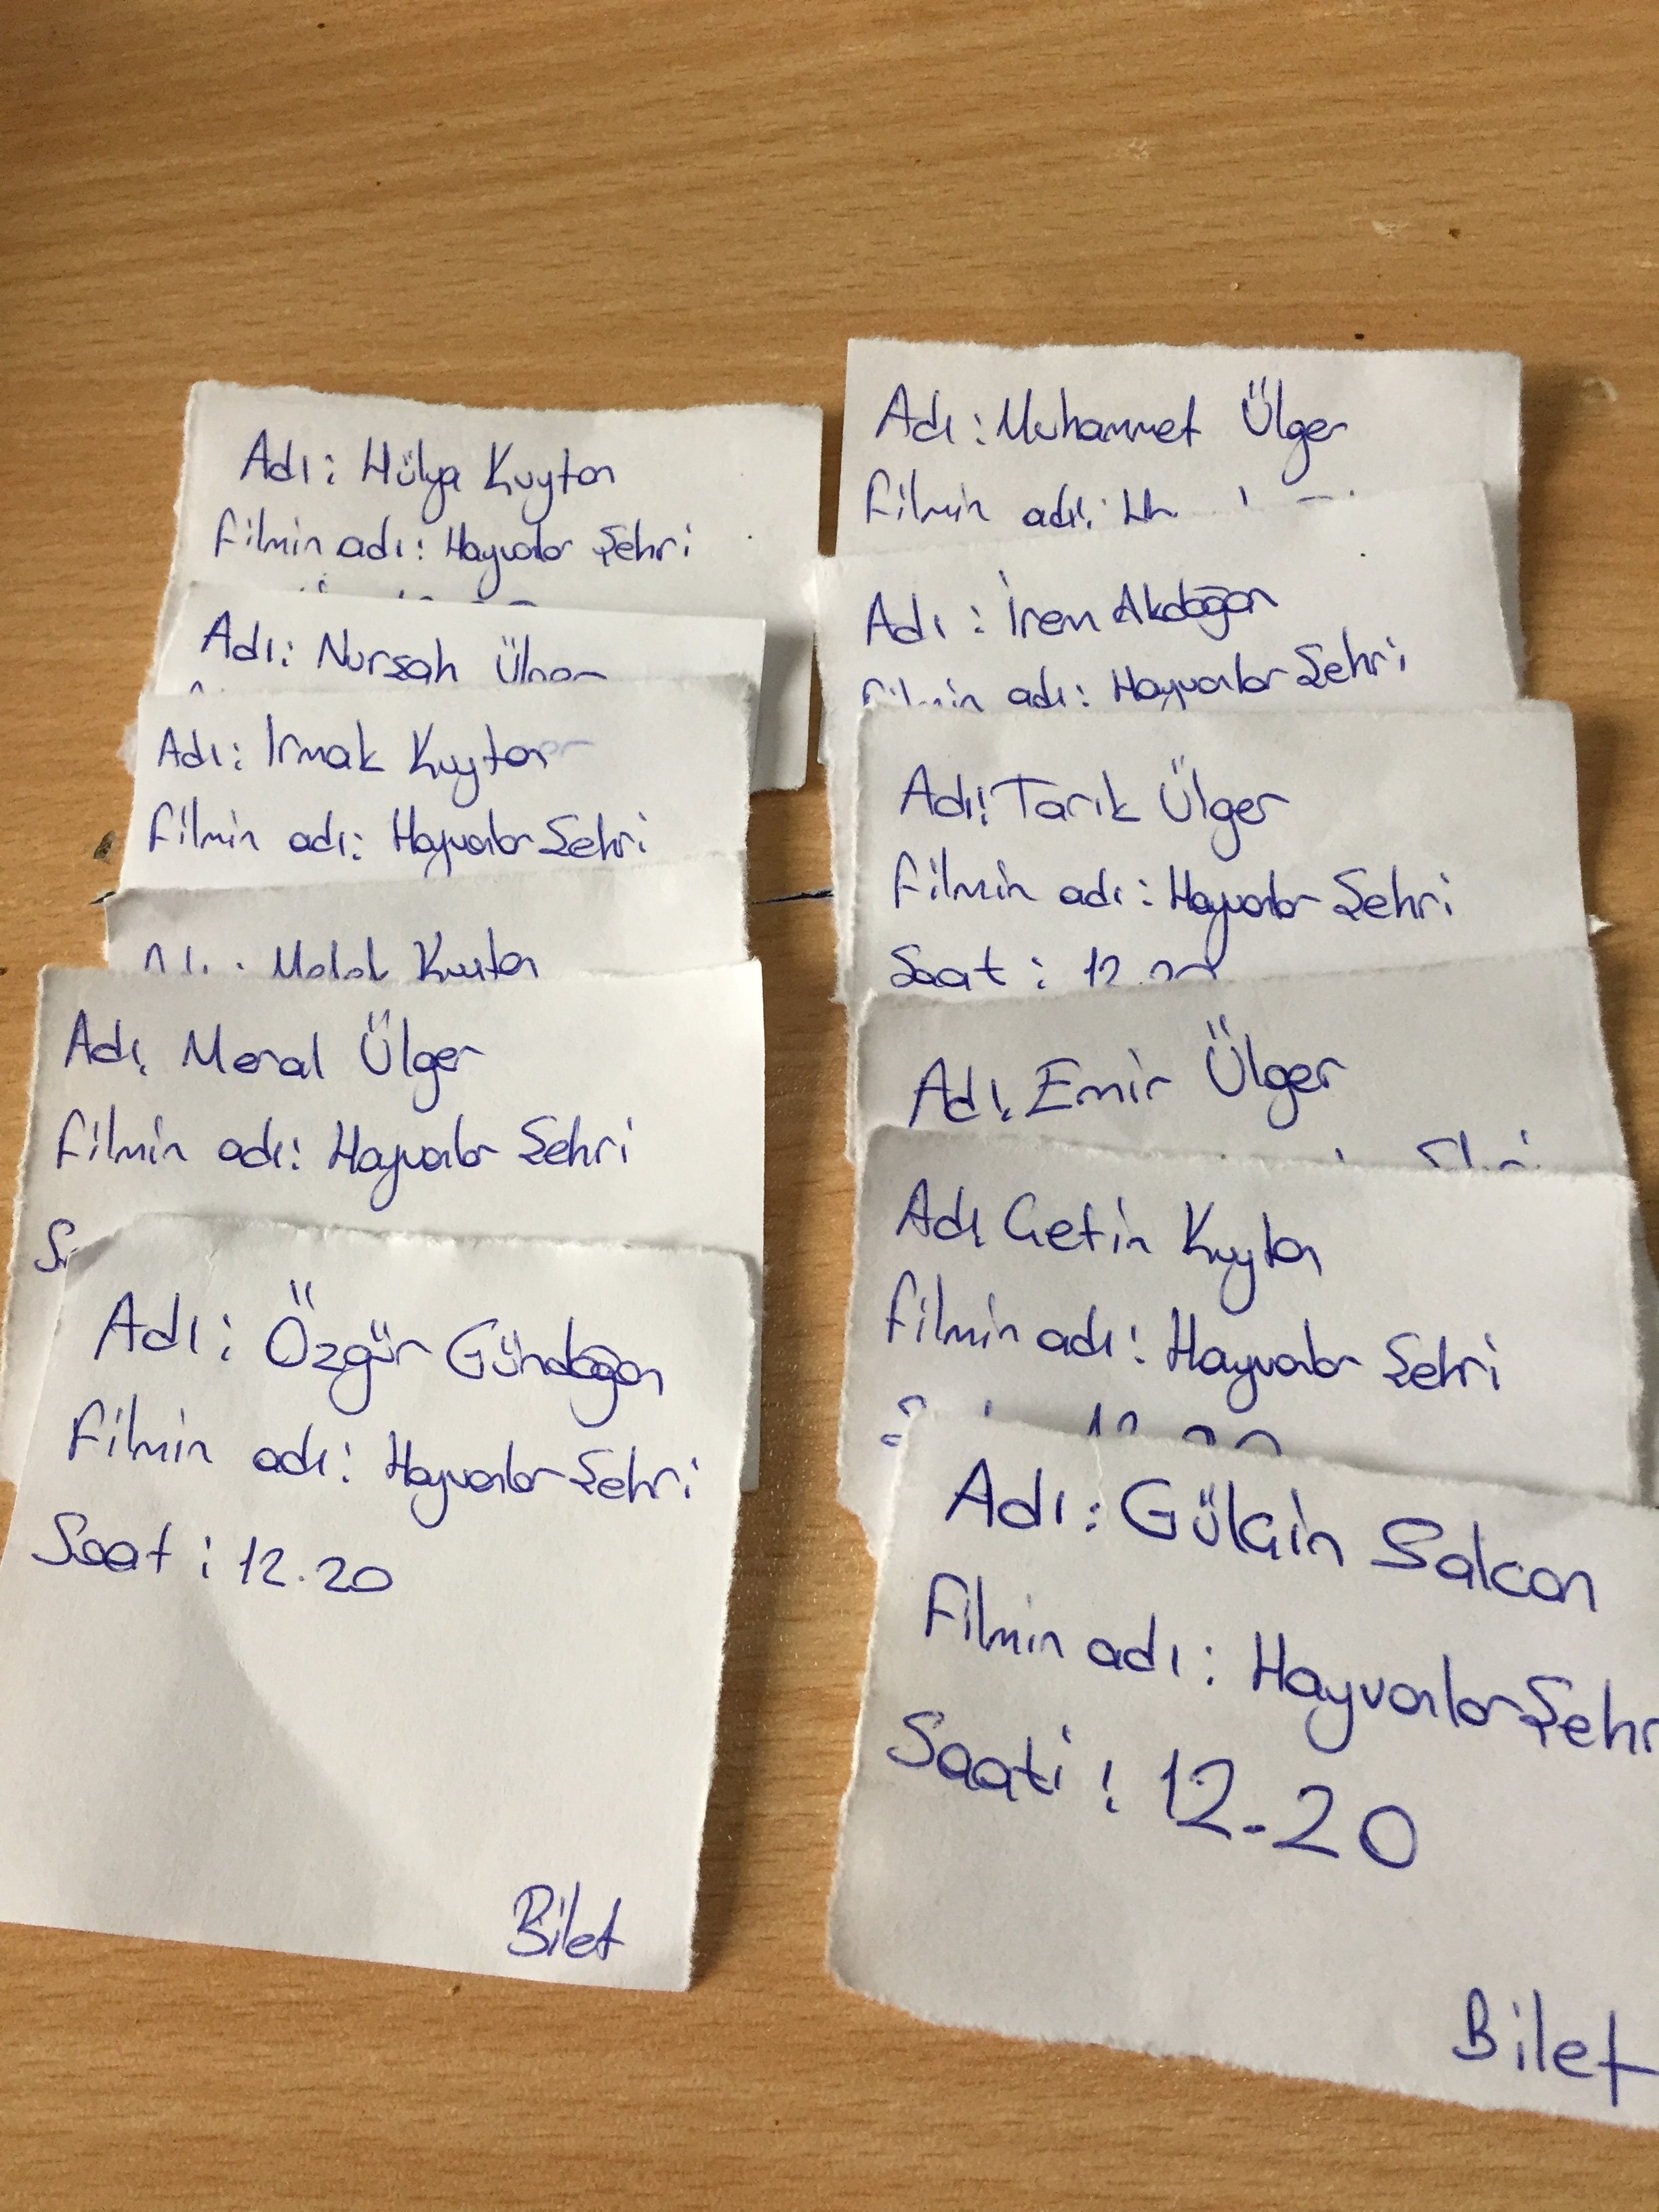 Adı: Hülya Kuytan
Filmin adı: Hayvanlar Şehri
Adı: Nurşah
Adı: Irmak Kuytan
Filmin adı: Hayvanlar Şehri
Kuytan
Adı: Meral Ülger
Filmin adı: Hayvanlar Şehri
Adı: Özgür Gündoğan
Filmin adı: Hayvanlar Şehri
Saat: 12.20
Bilet
Adı: Muhammet Ülger
Filmin adı:
Adı: İrem Akdoğan
Filmin adı: Hayvanlar Şehri
Adı: Tarık Ülger
Filmin adı: Hayvanlar Şehri
Saat: 12.20
Adı: Emir Ülger
Adı Çetin Kuytan
Filmin adı: Hayvanlar Şehri
Adı: Gülçin Salcan
Filmin adı: Hayvanlar Şehr
Saati: 12.20
Bilet